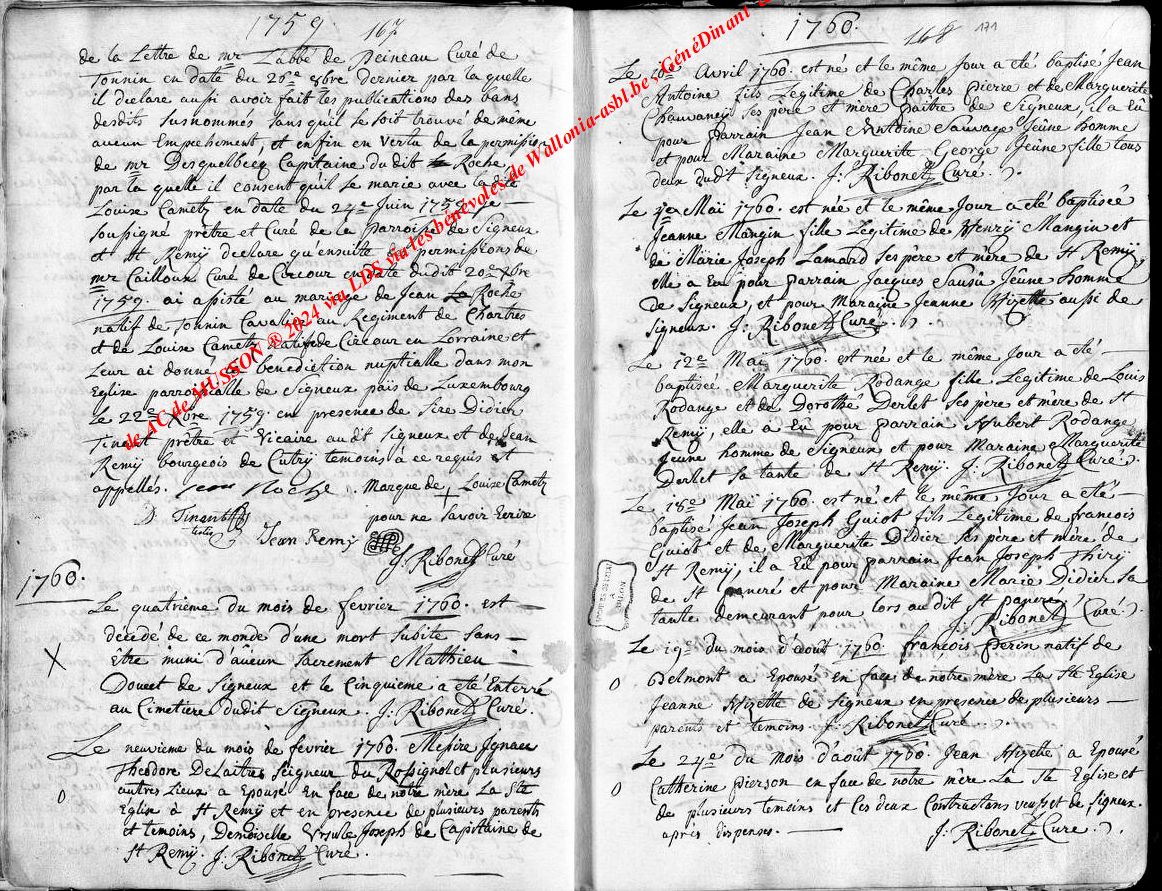 1759. 167
de la Lettre de mr L'abbé de Peineau Curé de
Tonnin en date du 26e xbre dernier par la quelle
il declare aussi avoir fait les publications des bans
desdits susnommés sans qu'il se soit trouvé de meme
aucun Empechement, et enfin en vertu de la permission
de mr Desquelbecq Capitaine du dit Roche
par la quelle il consent qu'il se marie avec la dite
Louise Cametz en date du 24e Juin 1759. je
soussigné prêtre et Curé de la Parroisse de Signeux
et St Remÿ declare qu'ensuitte de permissions de
mr Cailloux Curé de Circour en date dudit 20e xbre
1759. ai assisté au mariage de Jean La Roche
natif de Tonnin Cavalier au Regiment de Chartres
et de Louise Cametz natifde Circour en Lorraine et
Leur ai donné la benediction nuptialle dans mon
Eglise parroissialle de Signeux païs de Luxembourg
Le 22e xbre 1759. en presence de Sire Didier
Tinant prêtre et Vicaire audit Signeux et de Jean
Remÿ bourgeois de Cutrÿ temoins à ce requis et
appellés. jean Roche . Marque de + Louise Cametz
D. Tinant pour ne savoir Ecrire
testis Jean Remÿ
J. Ribonet Curé
1760.
Le quatrieme du mois de fevrier 1760. est
décédé de ce monde d'une mort subite sans
Être muni d'aucun sacrement Mathieu
X
Doucet de Signeux et le Cinquieme a été Enterré
au Cimetiere dudit Signeux. J. Ribonet Curé.
Le neuvieme du mois de fevrier 1760. Messire Jgnace
Theodore DeLaitres Seigneur du Rossignol et plusieurs
0
autres Lieux a Epousé En face de notre mère La Ste
Eglise à St Remÿ et en presence de plusieurs parents
et temoins, Demoiselle Ursule Joseph de Capitaine de
St Remÿ. J. Ribonet Curé.
1760.
168 171
Le Avril 1760. est né et le même Jour a été baptisé Jean
Antoine fils Legitime de Charles Pierre et de Marguerite
Chauvancÿ ses père et mere de Signeux, il a Eû
pour parrain Jean Antoine Sauvage Jeûne homme
et pour Maraine Marguerite George Jeûne fille tous
deux dudt Signeux. J. Ribonet Curé.
Le 1er Maï 1760. est née et le même Jour a été baptiseé
Jeanne Mangin fille Legitime de Henry Mangin et
de Marie Joseph Lamard ses père et mère de St Remÿ,
elle a Eu pour parrain Jacques Jeûne homme
de Signeux et pour Maraine Jeanne Hizette aussi de
Signeux. J. Ribonet Curé.
Le 12e Mai 1760. est née et le même Jour a été
baptisee Marguerite Rodange fille Legitime de Louis
Rodange et de Dorothé Derlet ses père et mère de St
Remÿ, elle a Eû pour parrain Hubert Rodange
Jeune homme de Signeux et pour Maraine Marguerite
Derlet sa tante de St Remÿ. J. Ribonet Curé.
Le 18e Mai 1760. est né et le même Jour a été
baptisé Jean Joseph Guiot fils Legitime de francois
Guiot et de Marguerite Didier ses père et mère de
St Remÿ, il a Eû pour parrain Jean Joseph Thirÿ
de St pancré et pour Maraine Marie Didier sa
tante demeurant pour lors audit St pancré
J. Ribonet Curé.
Le 19e du mois d'août 1760. françois perin natif de
0
Belmont a Epousé en face de notre mère La Ste Eglise
Jeanne Hizette de Signeux en presence de plusieurs
parents et temoins. J. Ribonet Curé.
Le 24e du mois d'août 1760. Jean Hizette a Epousé
0
Catherine pierson en face de notre mère La Ste Eglise et
de plusieurs temoins et les deux Contractans veufs et de Signeux.
après dispenses.
J. Ribonet Curé.
de AC de MUSSON ® 2024 via LDS via les bénévoles de Wallonia-asbl.be - GénéDinant